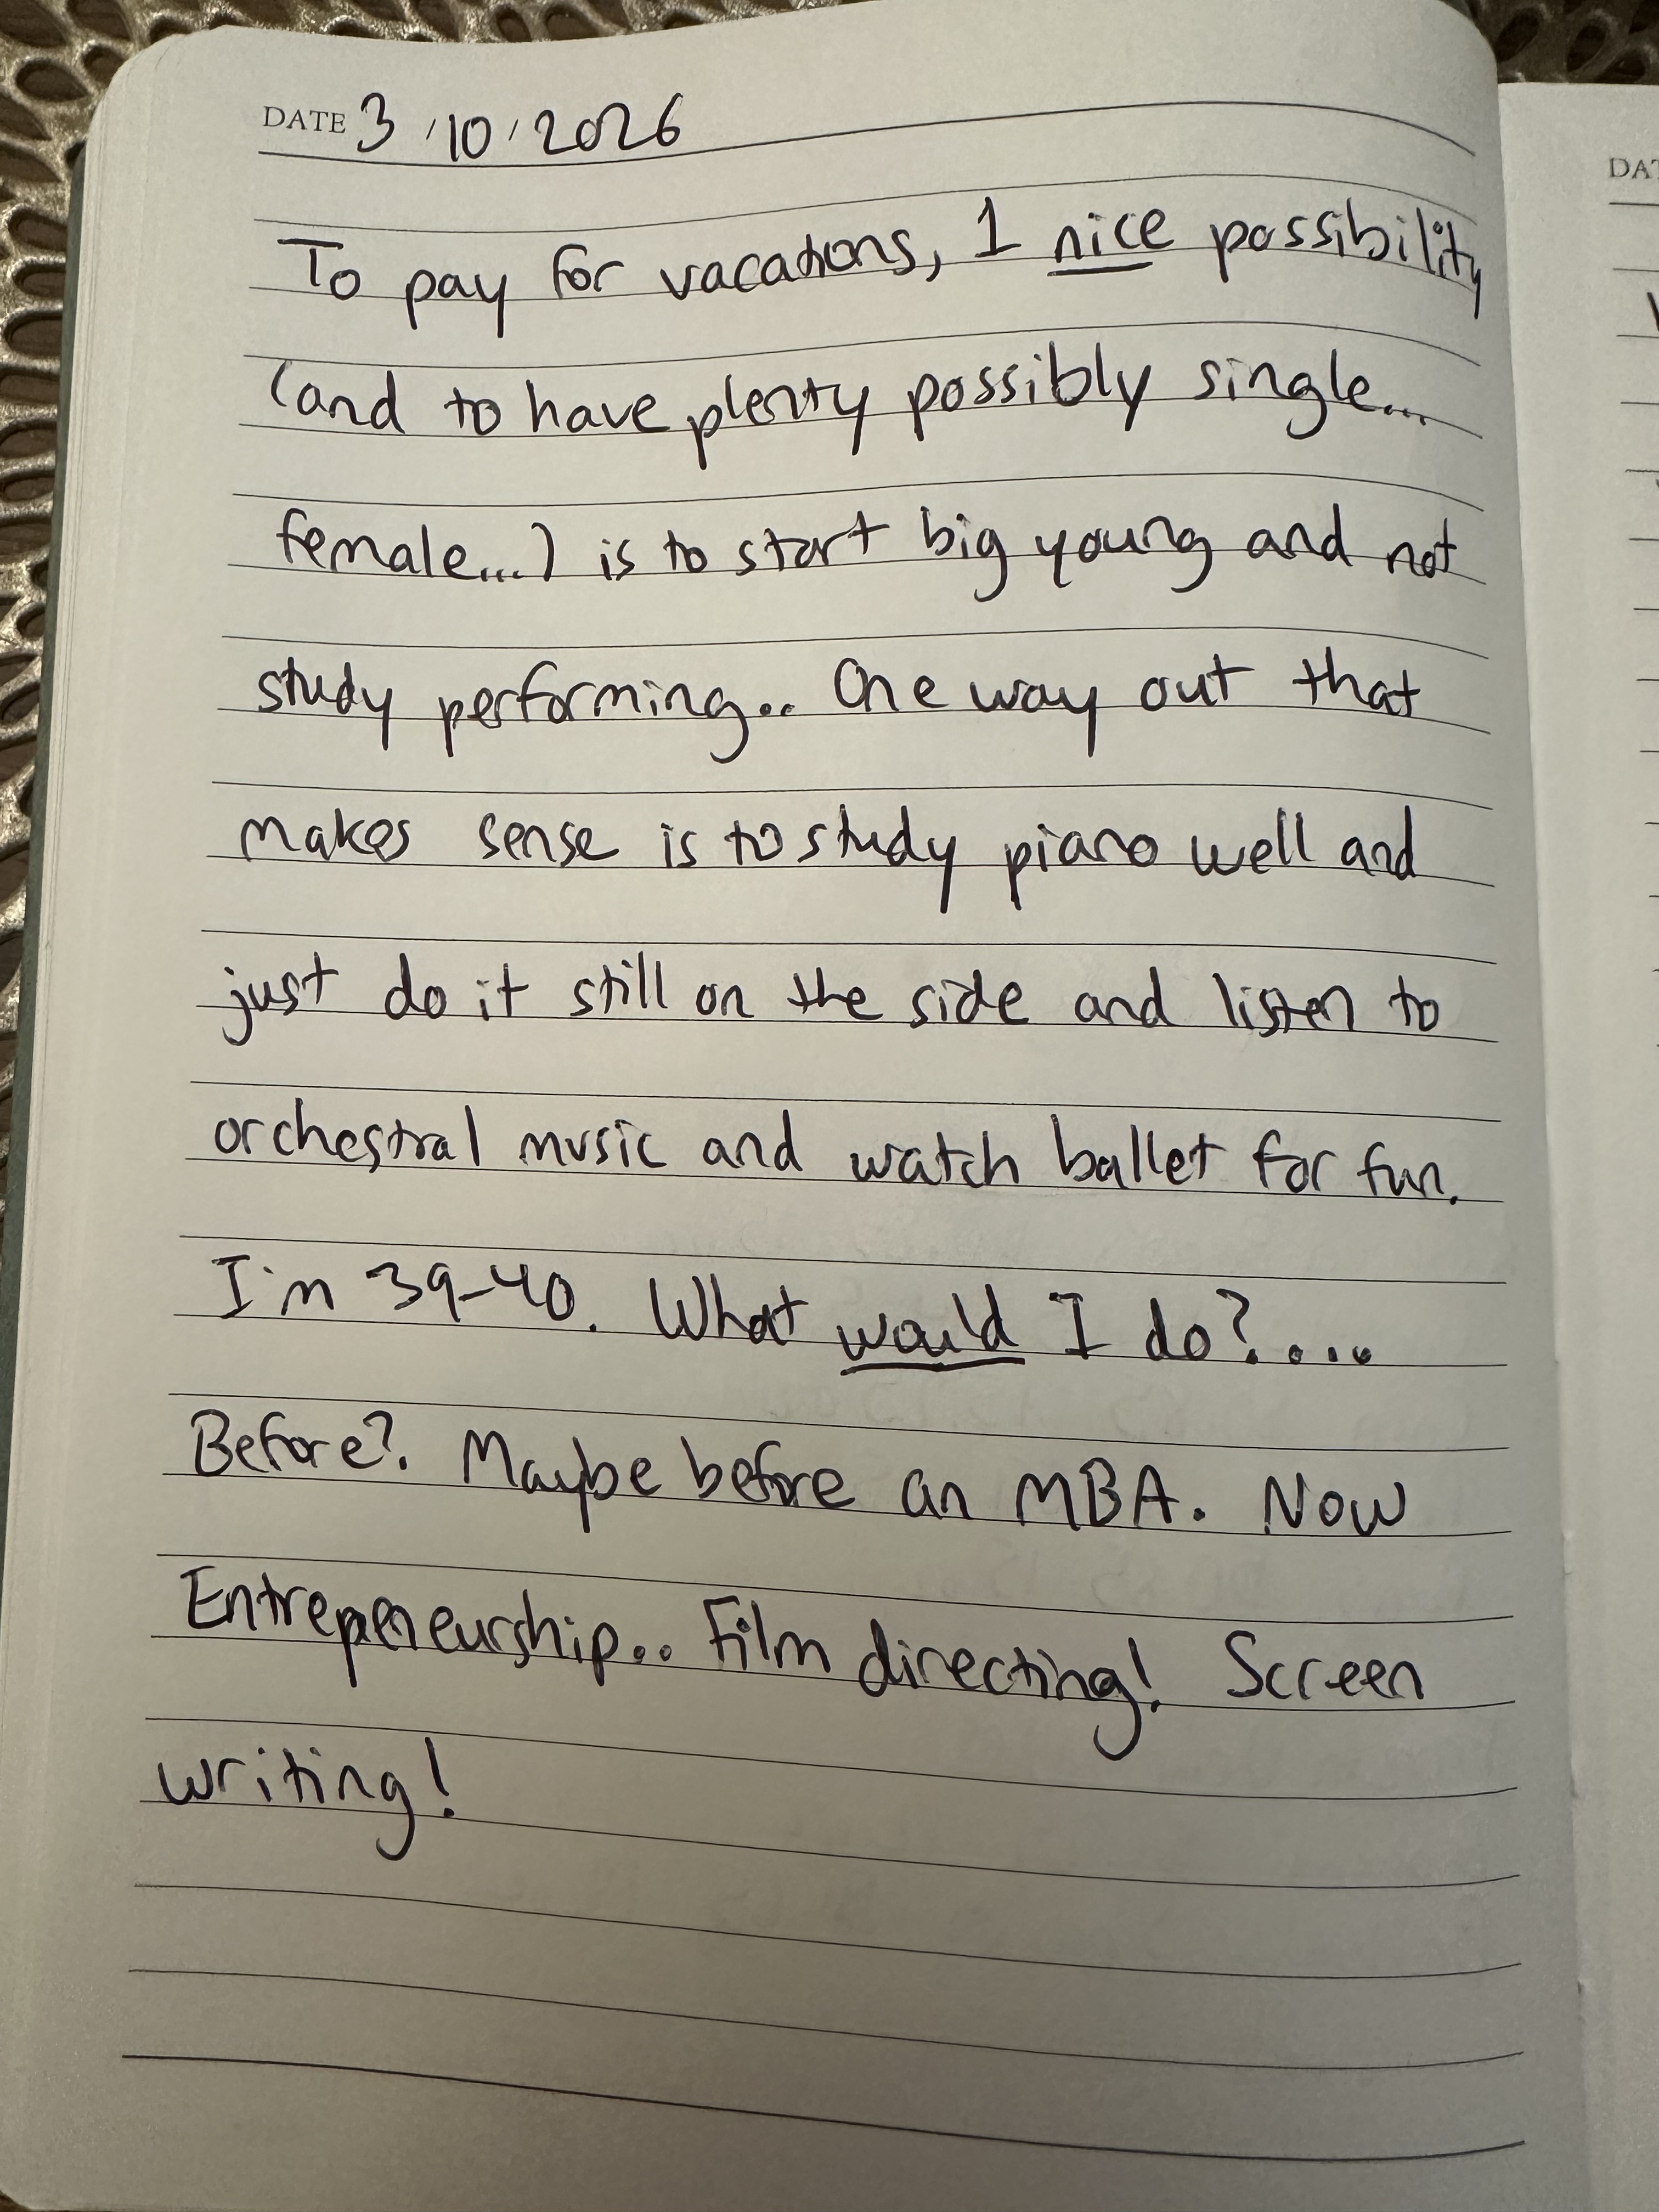 DATE 3/10/2026
To pay for vacations, 1 nice possibility
(and to have plenty possibly single...
female...) is to start big young and not
study performing.. One way out that
makes sense is to study piano well and
just do it still on the side and listen to
orchestral music and watch ballet for fun.
I'm 39-40. What would I do?....
Before?. Maybe before an MBA. Now
Entrepeneurship.. Film directing! Screen
writing!
DAT